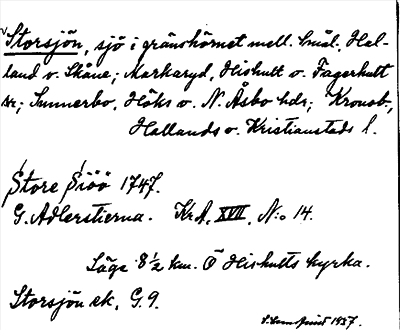 Storsjön, sjö i gränshörnet mell. Smål., Hal-
land o. Skåne; Markaryd, Hishult o. Fagerhult
sn; Sunnerbo, Höks o. N. Åsbo hdr; Kronob.,
Hallands o. Kristianstads l.
Store Siöö 1747.
G. Adlerstierna. Kr.A. XVII, N:o 14.
Läge 8 1/2 km. Ö Hishults kyrka.
Storsjön ek. G.9.
1937.